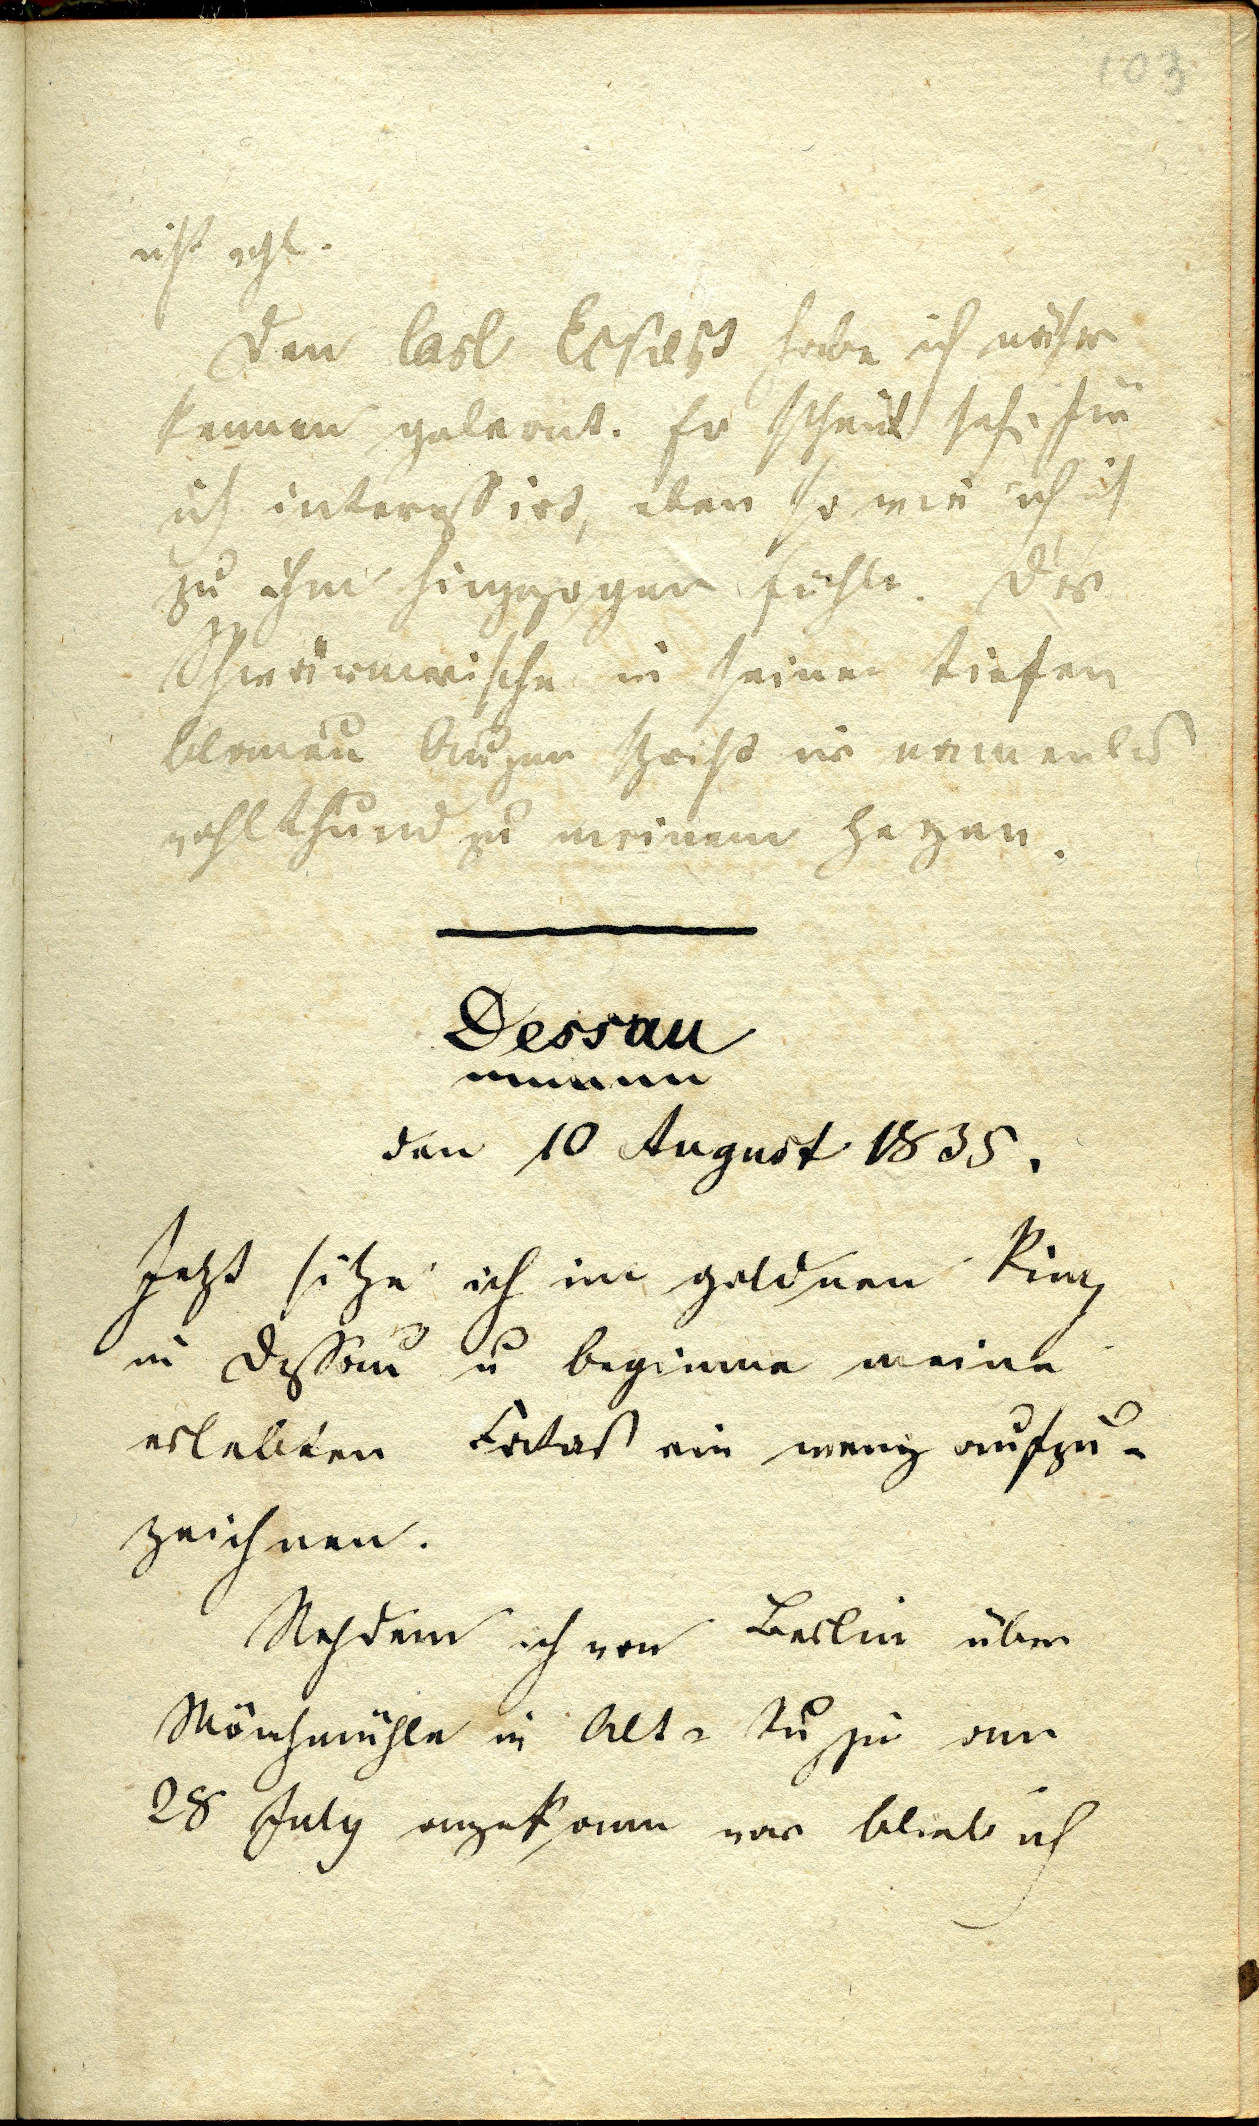 103
nicht wohl.
Den Carl Eckert habe ich näher
kennen gelernt. Er scheint sich für
mich interessirt, eben so wie ich mich
zu ihm hingezogen fühle. Das
Schwärmerische in seinen tiefen
blauen Augen spricht
wohlthuend zu meinem Herzen.
Dessau
den 10 August 1835.
Jetzt sitze ich im goldnen Ring
in Dessau u beginne meine
erlebten Fatas ein wenig aufzu-
zeichnen.
Nachdem ich von Berlin über
Mönchmühle in Alt-
28 July angekomm war blieb ich